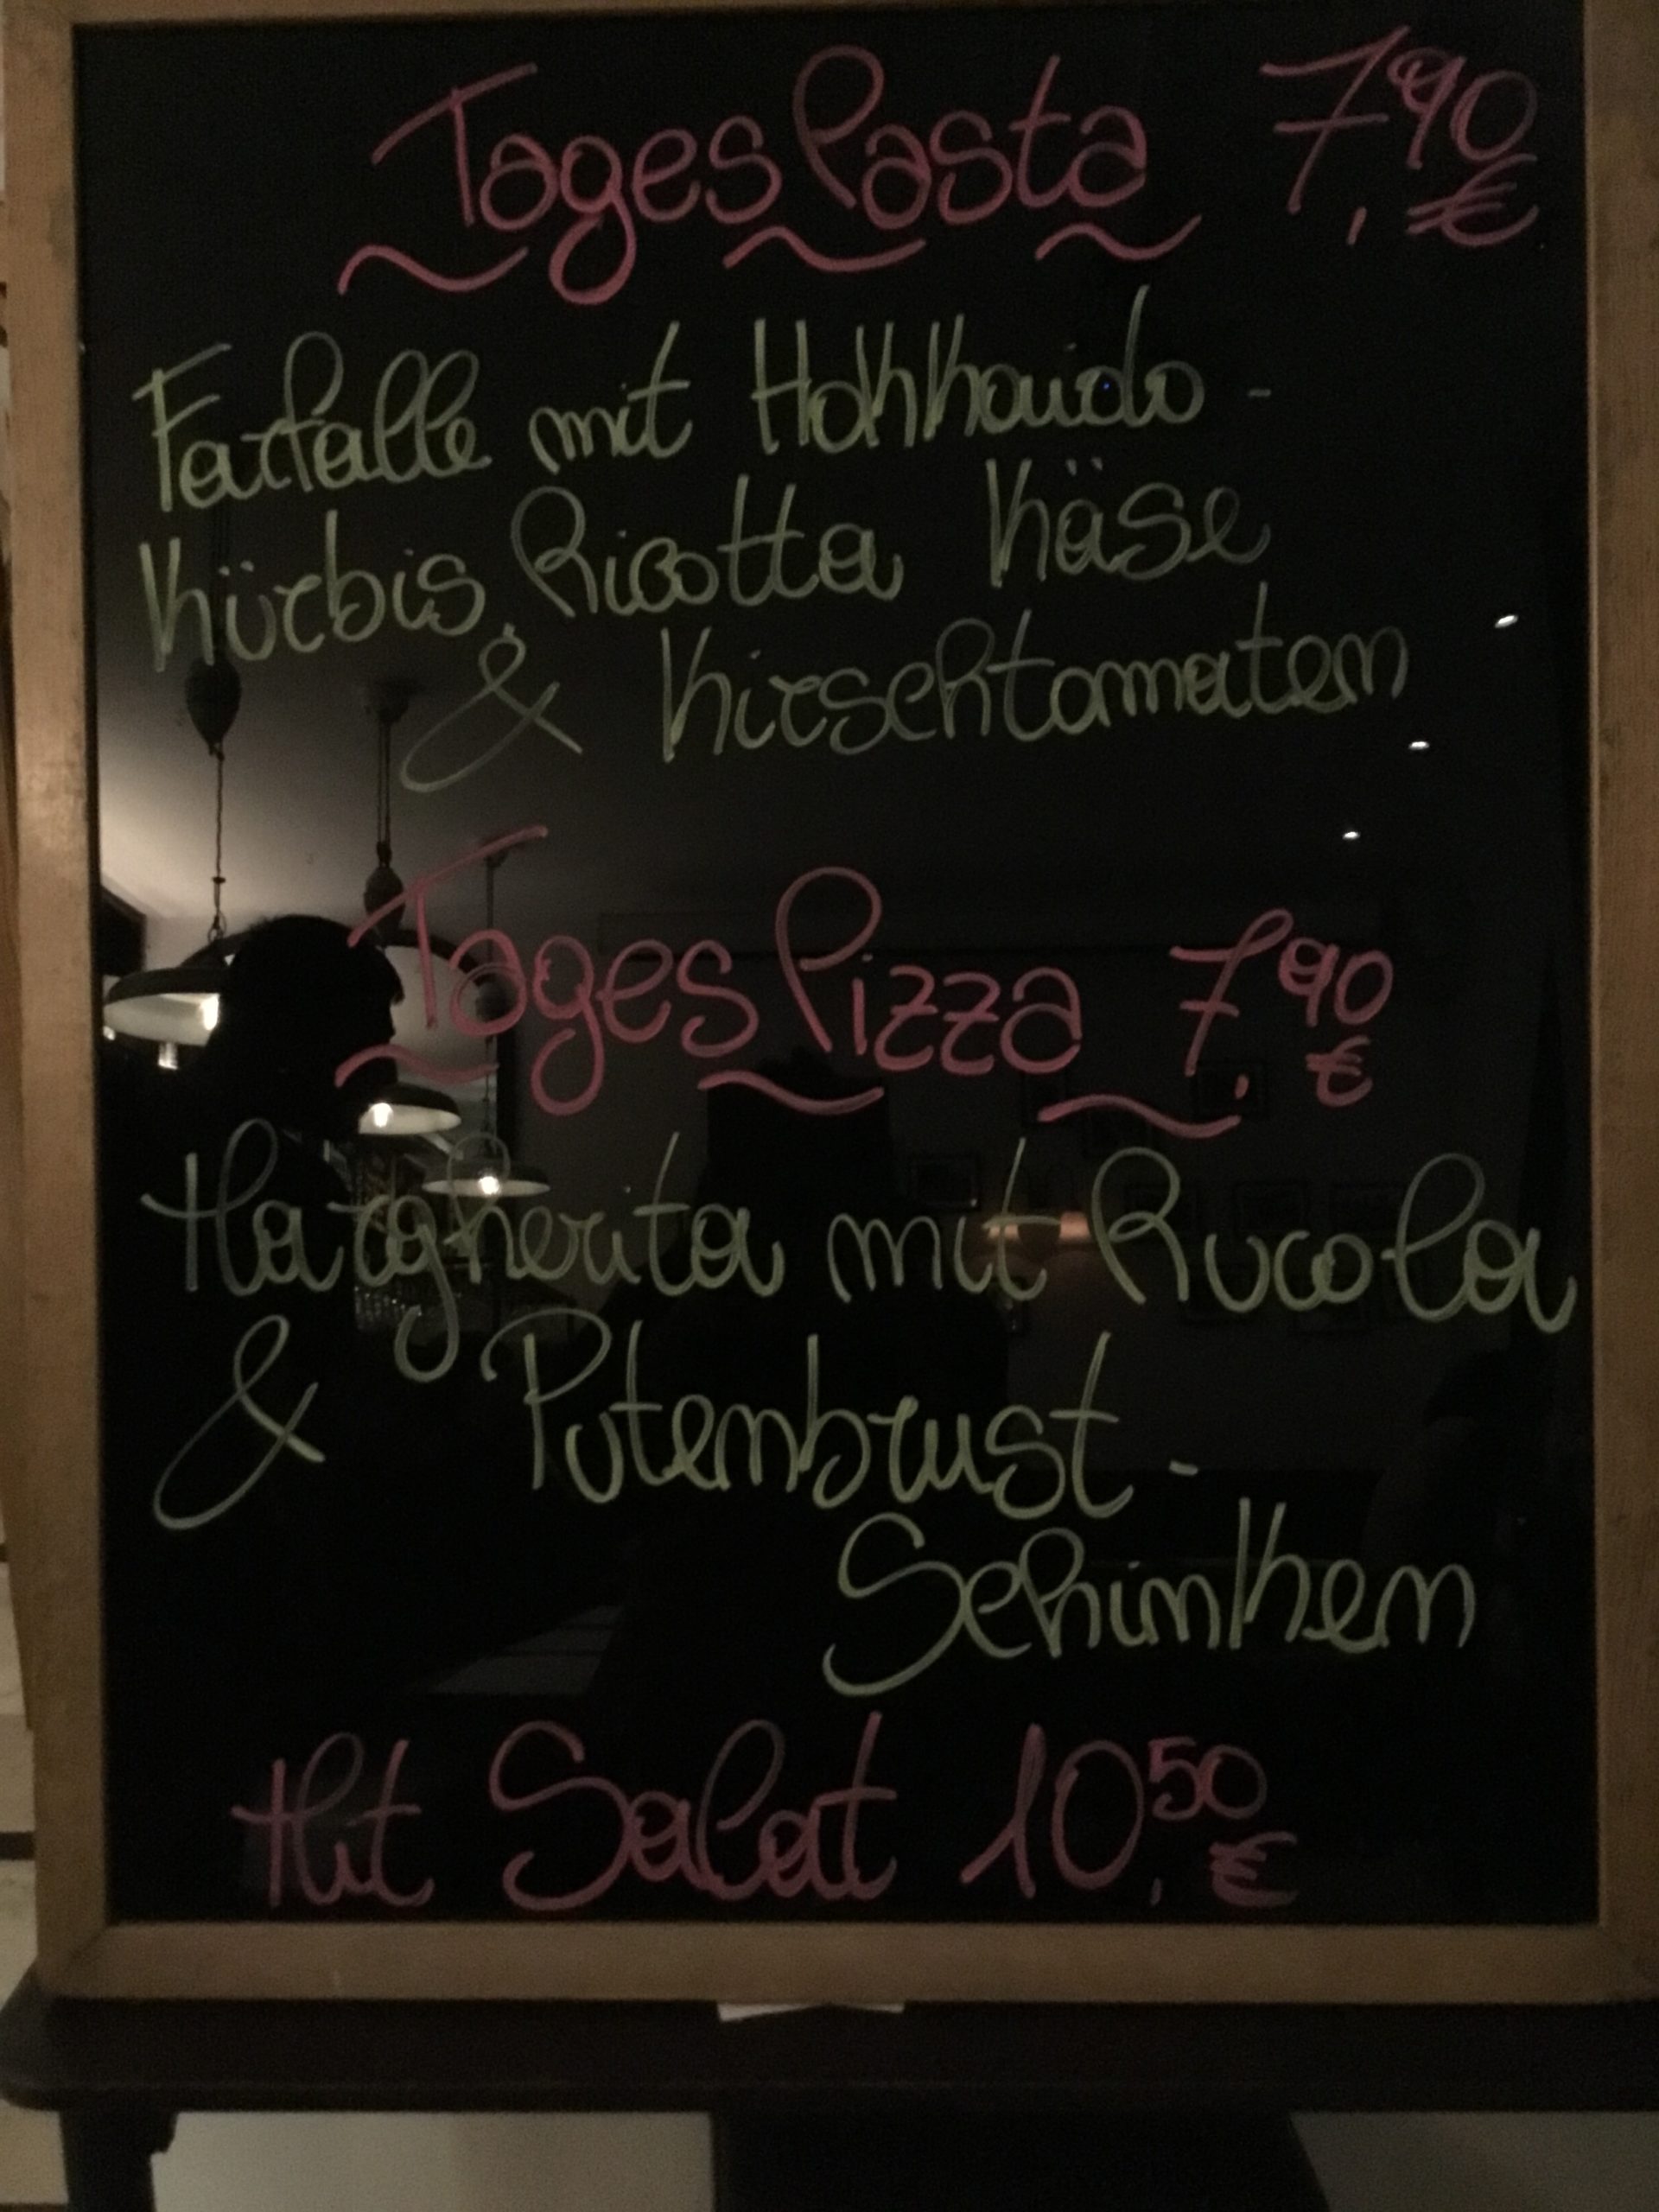 Tages Pasta 7,90 €
Farfalle mit Hokkaido-
Kürbis, Ricotta Käse
& Kirschtomaten
Tages Pizza 7,90 €
Margherita mit Rucola
& Putenbrust-
Schinken
Mit Salat 10,50 €